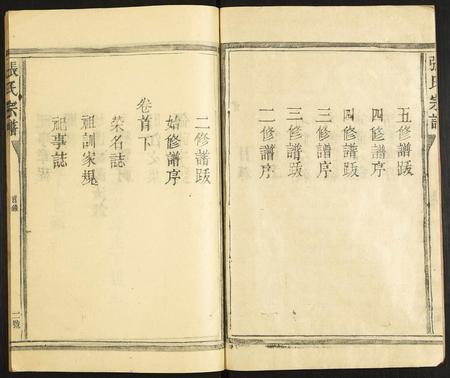 張氏宗譜
五修譜跋
四修譜序
四修譜跋
三修譜序
三修譜跋
二修譜序
二修譜跋
始修譜序
卷首下
榮名誌
祖訓家規
祀事誌
張氏宗譜
目錄
二號